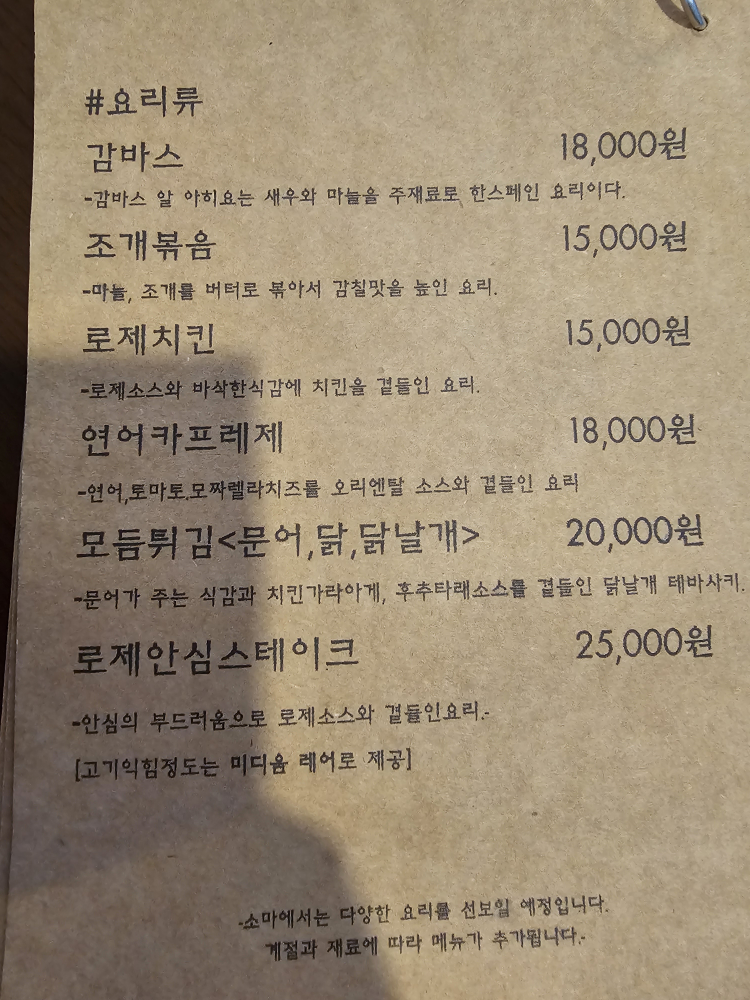 #요리류
감바스 18,000원
-감바스 알 아히요는 새우와 마늘을 주재료로 한스페인 요리이다.
조개볶음 15,000원
-마늘, 조개를 버터로 볶아서 감칠맛을 높인 요리.
로제치킨 15,000원
-로제소스와 바삭한식감에 치킨을 곁들인 요리.
연어카프레제 18,000원
-연어,토마토.모짜렐라치즈를 오리엔탈 소스와 곁들인 요리
모듬튀김<문어,닭,닭날개> 20,000원
-문어가 주는 식감과 치킨가라아게, 후추타래소스를 곁들인 닭날개 테바사키.
로제안심스테이크 25,000원
-안심의 부드러움으로 로제소스와 곁들인요리.-
[고기익힘정도는 미디움 레어로 제공]
-소마에서는 다양한 요리를 선보일 예정입니다.
계절과 재료에 따라 메뉴가 추가됩니다.-